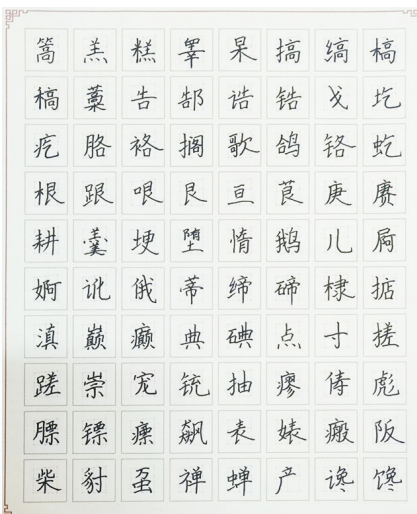 篙羔糕睾杲搞缟槁
稿藁告郜诰锆戈圪
疙胳袼搁歌鸽铬虼
根跟哏艮亘茛庚赓
耕羹埂堕惰鹅儿屙
婀讹俄蒂缔碲棣掂
滇巅癫典碘点寸搓
蹉崇宠铳抽瘳俦彪
膘镖瘭飙表婊瘢阪
柴豺虿禅蝉产谗馋